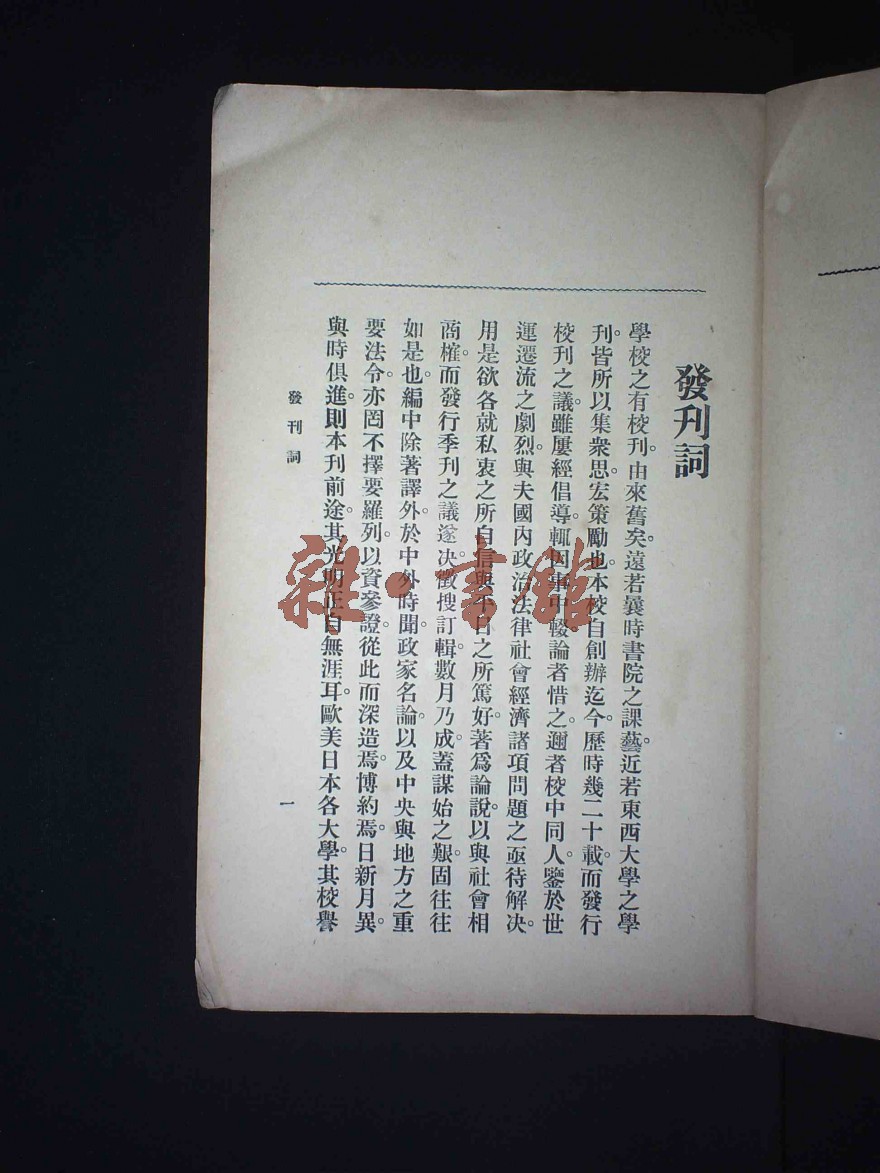 發刊詞
學校之有校刊。由來舊矣。遠若曩時書院之課藝。近若東西大學之學
刊。皆所以集衆思。宏策勵也。本校自創辦迄今。歷時幾二十載。而發行
校刊之議。雖屢經倡導。輒因事中輟。論者惜之。邇者校中同人。鑒於世
運遷流之劇烈。與夫國內政治法律社會經濟諸項問題之亟待解決。
用是欲各就私衷之所自信。與平日之所篤好。著爲論說。以與社會相
商榷。而發行季刊之議遂決。徵搜訂輯。數月乃成。蓋謀始之艱。固往往
如是也。編中除著譯外。於中外時聞。政家名論。以及中央與地方之重
要法令。亦罔不擇要羅列。以資參證。從此而深造焉。博約焉。日新月異。
與時俱進。則本刊前途。其光明正自無涯耳。歐美日本各大學。其校譽
發刊詞
一
雜·書館